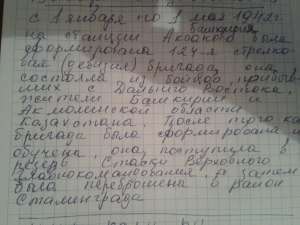 с 1 января по 1 мая 1942 г.
Башкирия
на станции Аксаково была
сформирована 124-я стрелко-
вая (дивиз) бригада, она
состояла из бойцов прибыв
ших с Дальнего Востока,
жители Башкирии и
Акмолинской области
Казахстана. После того как
бригада была сформирована и
обучена, она поступила в
резерв Ставки Верховного
Главнокомандования, а затем
была переброшена в район
Сталинграда